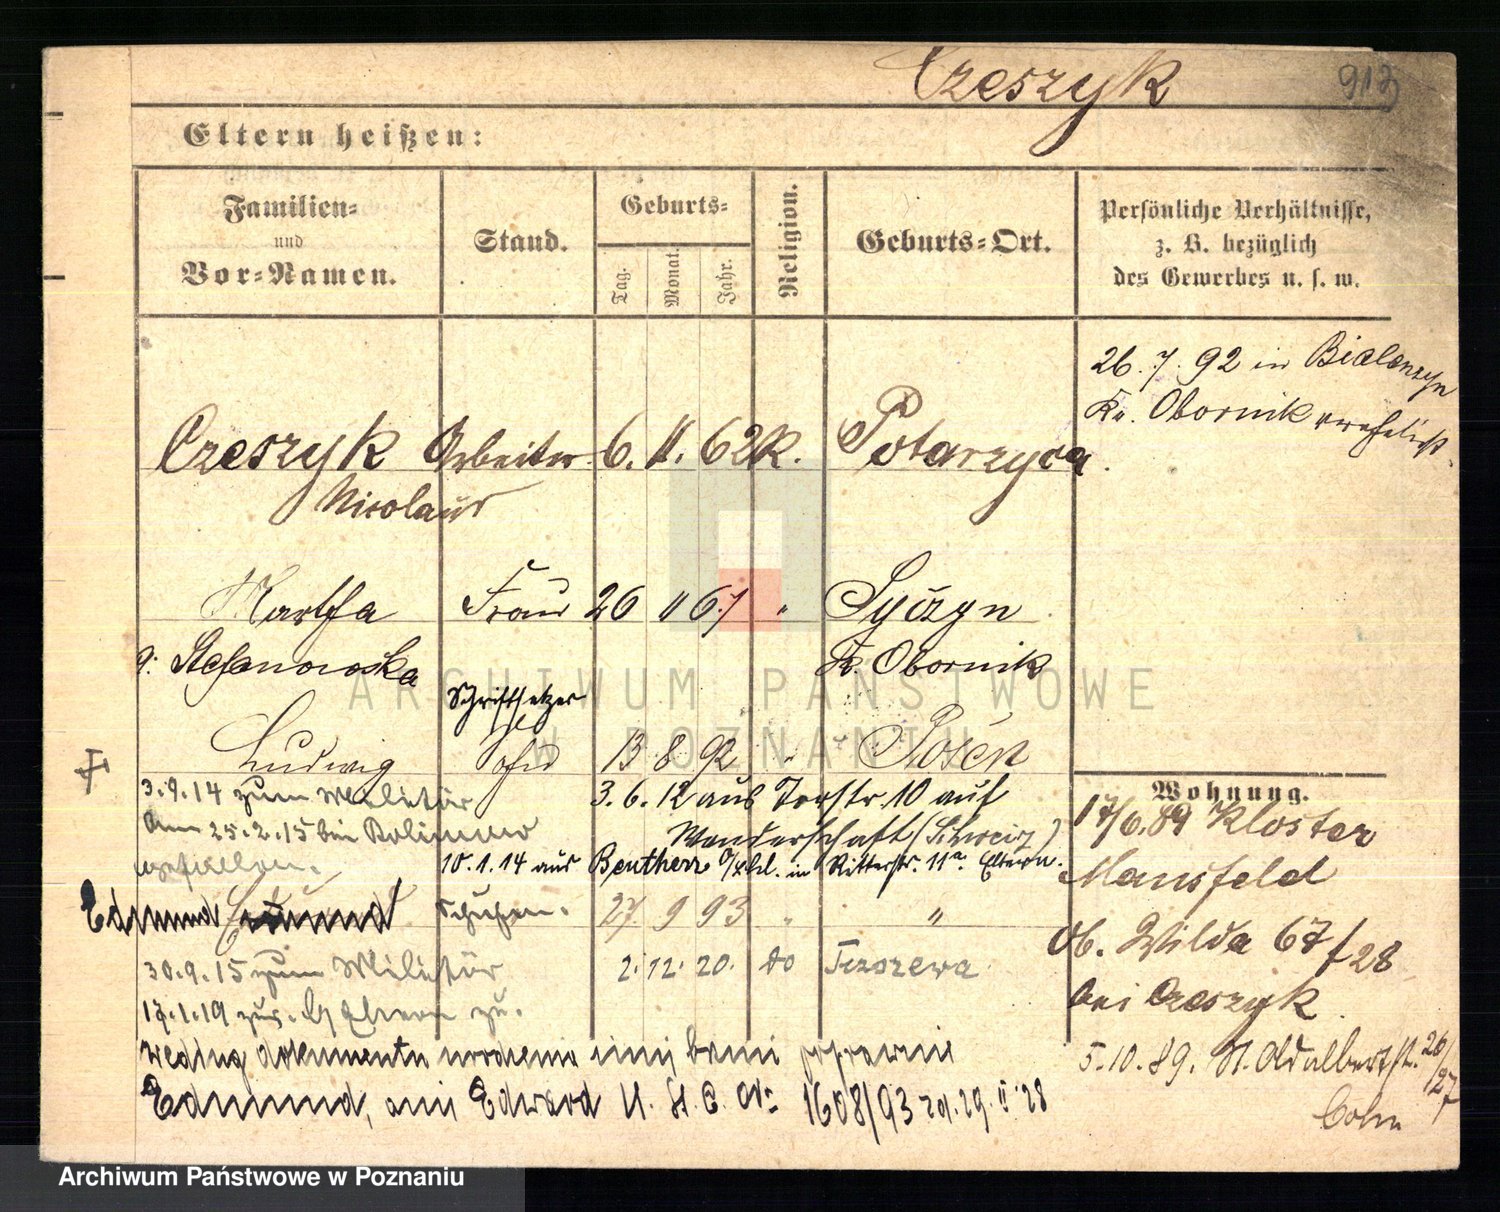 Czeszyk 913
Eltern heißen:
Familien=
und
Vor=Namen.
Stand.
Geburts=
Tag.
Monat.
Jahr.
Religion.
Geburts=Ort.
Persönliche Verhältnisse,
z. B. bezüglich
des Gewerbes u. s. w.
26. 7. 92 in Bialenzyn
Kr. Obornik verehelicht.
Czeszyk Arbeiter 6. 11. 62 K. Potarzyca.
Nicolaus
Martha Frau 26 11 67 " Syczyn
g. Stefanowska Kr. Obornik
Schriftsetzer
Ludwig 13 8 92 " Posen
3.9.14 zum Militär 3.6.12 aus Torstr. 10 auf
am 25.2.15 bei Wanderschaft (Schweiz)
gefallen. 10.1.14 aus Beuthen O/Schl. in Ritterstr. 11a Eltern.
Edmund 27 9 93 " "
30.9.15 zum Militär 2. 12. 20. do
17.1.19 zur. Eltern zu.
według dokumentu urodzenia imię brzmi poprawnie
Edmund, a nie Edward U. St. C. Nr 1608/93 29. II 28
Wohnung.
17/6.89 Kloster
Mansfeld
Ob. Wilda 67 f 28
bei Czeszyk
5.10.89. St. Adalbertst. 26/27
Cohn
ARCHIWUM PAŃSTWOWE
W POZNANIU
Archiwum Państwowe w Poznaniu